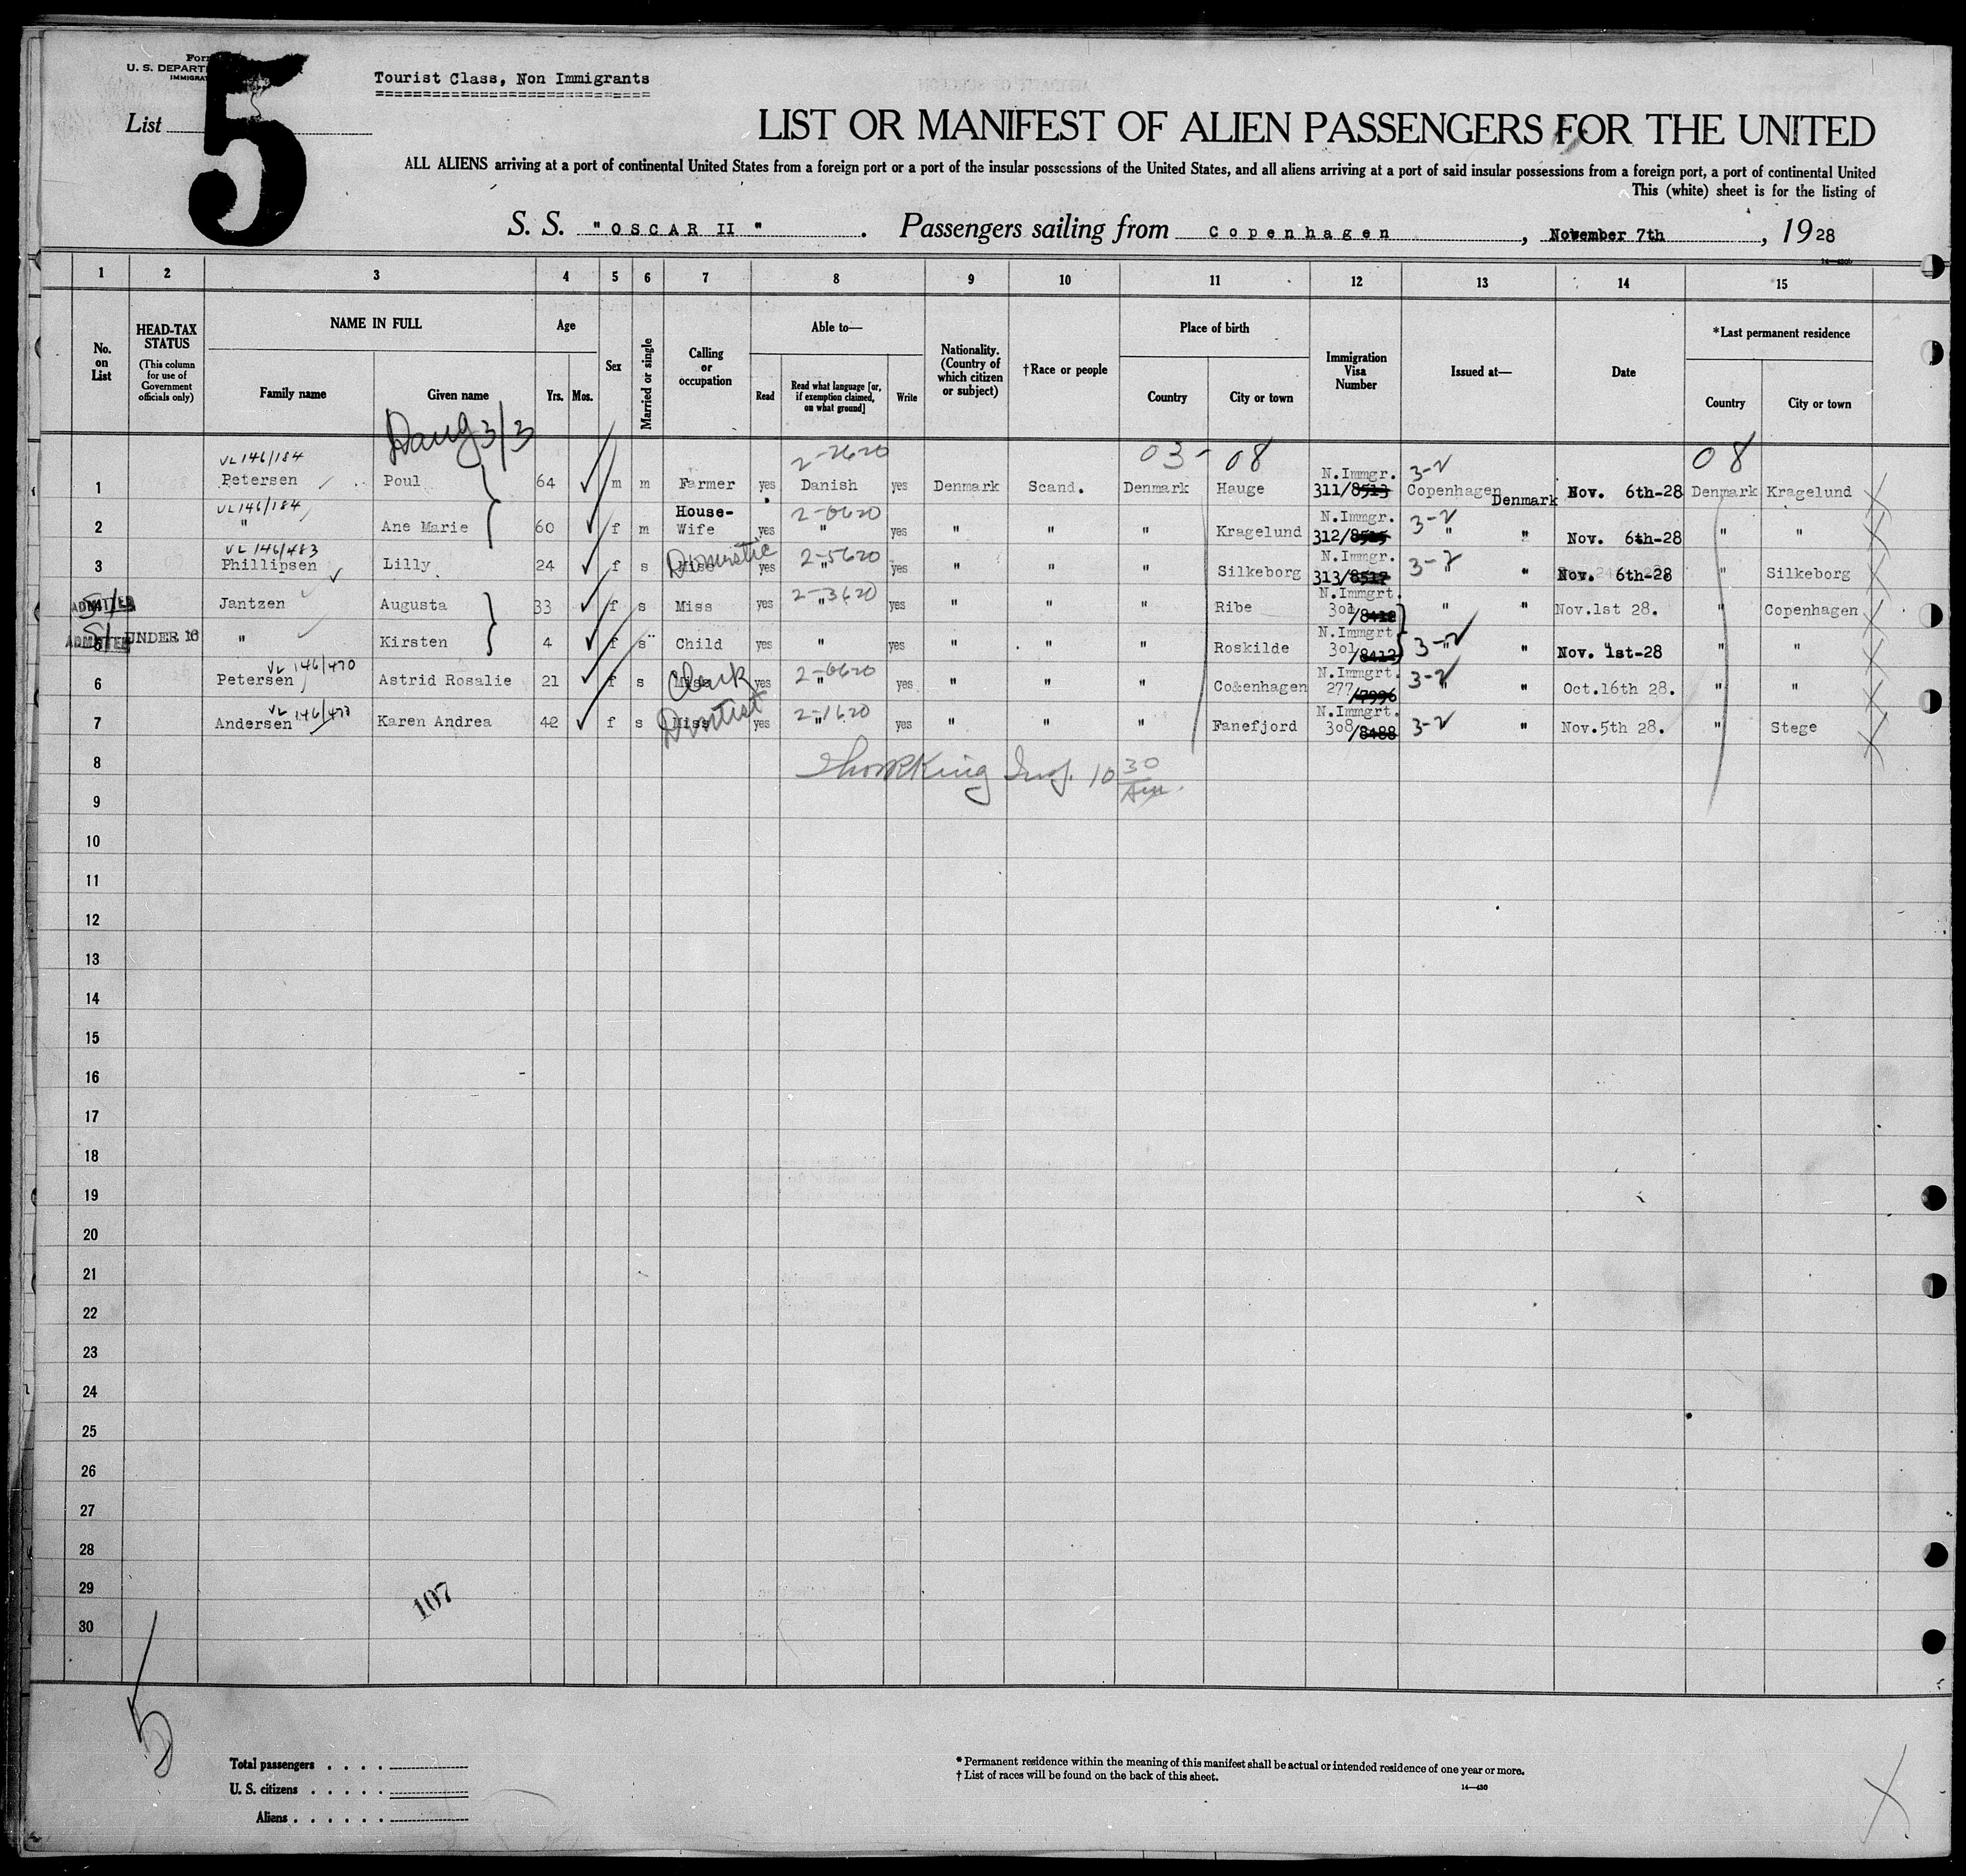 Form
U. S. DEPART
IMMIGRAT
Tourist Class, Non Immigrants
List
5
LIST OR MANIFEST OF ALIEN PASSENGERS FOR THE UNITED
ALL ALIENS arriving at a port of continental United States from a foreign port or a port of the insular possessions of the United States, and all aliens arriving at a port of said insular possessions from a foreign port, a port of continental United
This (white) sheet is for the listing of
S. S. "OSCAR II". Passengers sailing from Copenhagen, November 7th, 1928
1 2 3 4 5 6 7 8 9 10 11 12 13 14 15
No. on List
HEAD-TAX STATUS
(This column for use of Government officials only)
NAME IN FULL
Family name Given name
Age
Yrs. Mos.
Sex
Married or single
Calling or occupation
Able to—
Read Read what language [or, if exemption claimed, on what ground] Write
Nationality. (Country of which citizen or subject)
†Race or people
Place of birth
Country City or town
Immigration Visa Number
Issued at—
Date
*Last permanent residence
Country City or town
2-2620 03- 08 08
VL 146/184
1 Petersen Poul 64 m m Farmer yes Danish yes Denmark Scand. Denmark Hauge N.Immgr. 311/8513 3-2 Copenhagen Denmark Nov. 6th-28 Denmark Kragelund
VL 146/184
2 " Ane Marie 60 f m House-Wife yes 2-0620 " yes " " " Kragelund N.Immgr. 312/ 3-2 " " Nov. 6th-28 " "
VL 146/483
3 Phillipsen Lilly 24 f s Domestic yes 2-5620 " yes " " " Silkeborg N.Immgr. 313/8517 " " Nov. 6th-28 " Silkeborg
ADMITTED Jantzen Augusta 33 f s Miss yes 2-3620 " yes " " " Ribe N.Immgrt. 301/8412 " " Nov.1st 28. " Copenhagen
ADMITTED UNDER 16 " Kirsten 4 f s Child yes " yes " " " Roskilde N.Immgrt 301/8412 3-2 " " Nov. 1st-28 " "
VL 146/470
6 Petersen Astrid Rosalie 21 f s Miss Clerk yes 2-0620 " yes " " " Copenhagen N.Immgrt. 277/7996 3-2 " " Oct.16th 28. " "
VL 146/473
7 Andersen Karen Andrea 42 f s Miss Dentist yes 2-1620 " yes " " " Fanefjord N.Immgrt. 308/8488 3-2 " Nov.5th 28. " Stege
8 King 10 30
9
10
11
12
13
14
15
16
17
18
19
20
21
22
23
24
25
26
27
28
29
107
30
5
Total passengers . . . .
U. S. citizens . . . . .
Aliens . . . . . .
* Permanent residence within the meaning of this manifest shall be actual or intended residence of one year or more.
† List of races will be found on the back of this sheet.
14—430